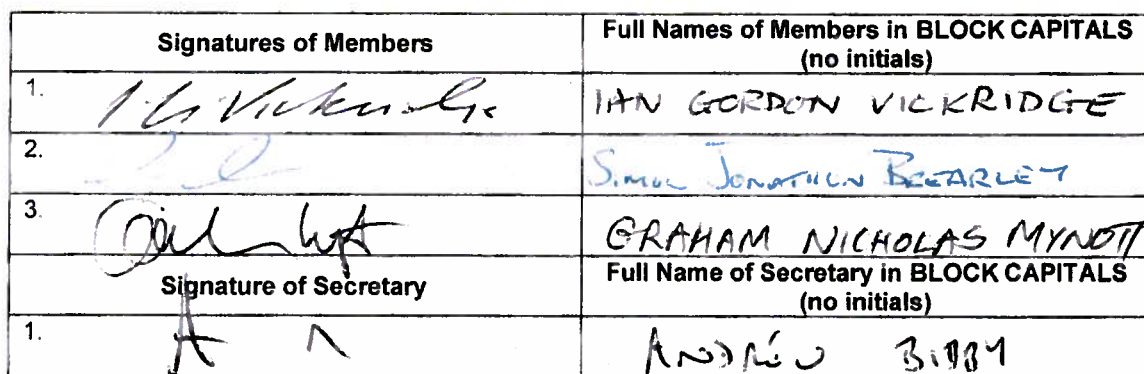 Signatures of Members Full Names of Members in BLOCK CAPITALS
(no initials)
1. IAN GORDON VICKRIDGE
2. SIMON JONATHAN
3. GRAHAM NICHOLAS MYNOTT
Signature of Secretary Full Name of Secretary in BLOCK CAPITALS
(no initials)
1. ANDREW BIBBY